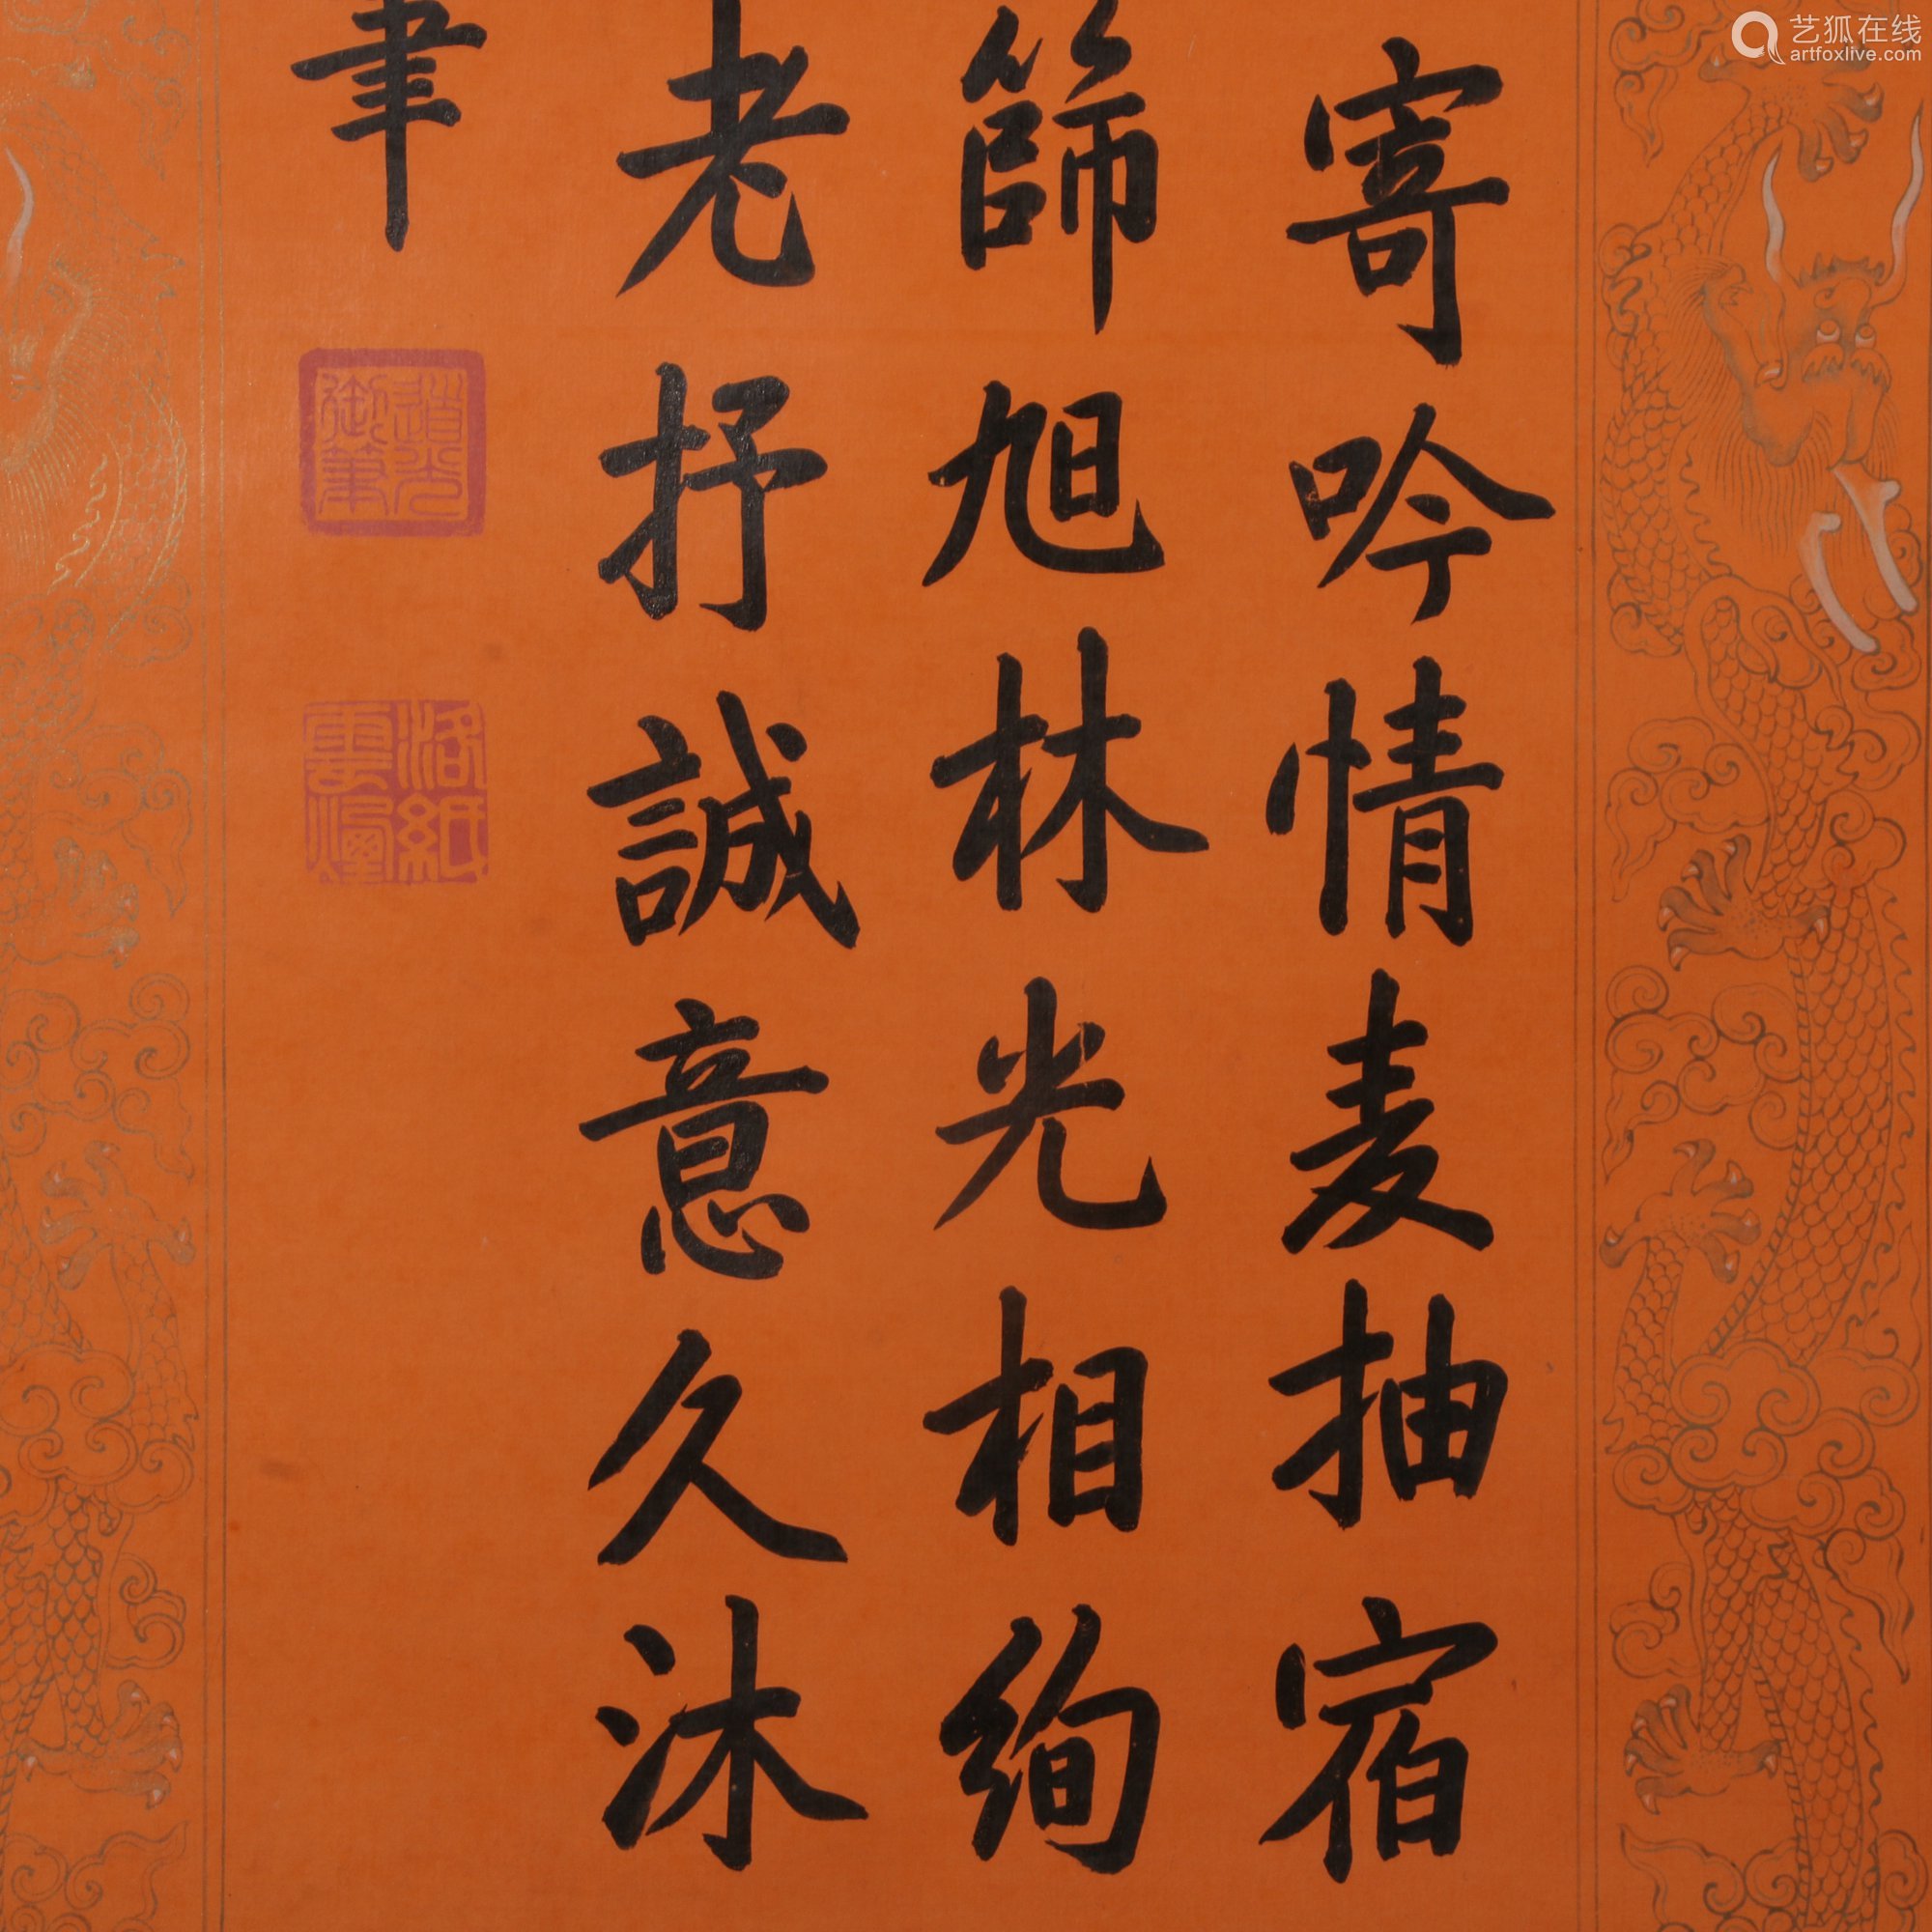 寄吟情麦抽宿
篩旭林光相絢
老抒誠意久沐
筆
道光
御筆
洛紙
雲烟
艺狐在线
artfoxlive.com